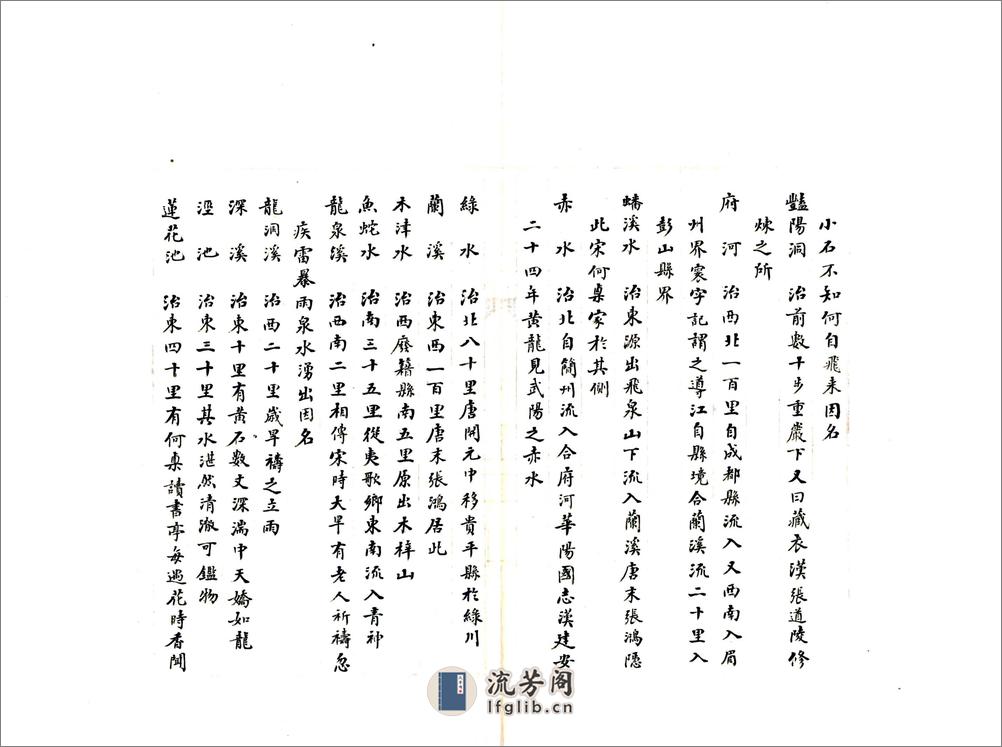 小石不知何自飛来因名
豔陽洞 治前數十步重巖下又曰藏衣漢張道陵修
煉之所
府河 治西北一百里自成都縣流入又西南入眉
州界寰宇記謂之導江自縣境合蘭溪流二十里入
彭山縣界
蟠溪水 治東源出飛泉山下流入蘭溪唐末張鴻隱
此宋何㮚家於其側
赤水 治北自簡州流入合府河華陽國志漢建安
二十四年黃龍見武陽之赤水
綠水 治北八十里唐開元中移貴平縣於綠川
蘭溪 治東西一百里唐末張鴻居此
禾津水 治西廢籍縣南五里原出木梓山
魚蛇水 治南三十五里從夷歌鄉東南流入青神
龍泉溪 治西南二里相傳宋時大旱有老人祈禱忽
疾雷暴雨泉水湧出因名
龍洞溪 治西二十里歲旱禱之立雨
深溪 治東十里有黃石數丈深湍中夭嬌如龍
池 治東三十里其水湛然清澈可鑑物
蓮花池 治東四十里有何㮚讀書亭每遇花時香聞
流芳阁
lfglib.cn